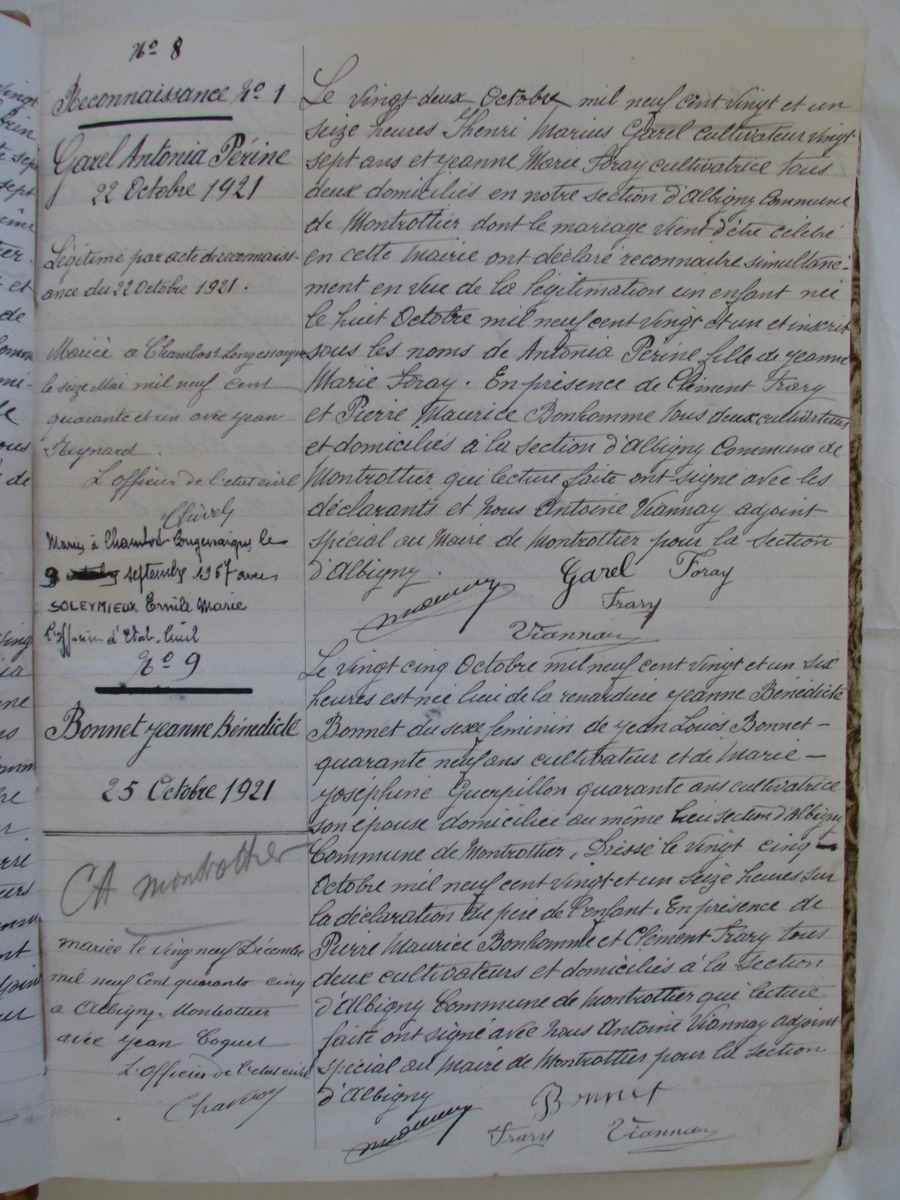 Nº 8
Reconnaissance Nº 1
Garel Antonia Périne
22 Octobre 1921
Légitimé par acte de reconnaiss-
ance du 22 Octobre 1921.
Mariée a Chambost Longessaigne
le seize Mai mil neuf cent
quarante et un avec Jean
Reynard.
L'officier de l'etat civil
Marié à Chambost Longessaigne le
9 septembre 1967 avec
SOLEYMIEUX Emile Marie
L'officier d'Etat-Civil
Le vingt deux Octobre mil neuf cent vingt et un
seize heures Henri Marius Garel cultivateur vingt
sept ans et Jeanne Marie Foray cultivatrice tous
deux domiciliés en notre section d'Albigny Commune
de Montrottier dont le mariage vient d'être célébré
en cette Mairie ont déclaré reconnaitre simultané-
ment en vue de la légitimation un enfant née
le huit Octobre mil neuf cent vingt et un et inscrit
sous les noms de Antonia Périne fille de Jeanne
Marie Foray. En présence de Clément Frary
et Pierre Maurice Bonhomme tous deux cultivateurs
et domiciliés à la section d'Albigny Commune de
Montrottier qui lecture faite ont signé avec les
déclarants et nous Antoine Viannay adjoint
spécial au Maire de Montrottier pour la section
d'Albigny.
Garel Foray
Frary
Viannay
Nº 9
Bonnet Jeanne Bénédicte
25 Octobre 1921
CA Montrottier
mariée le vingt neuf Décembre
mil neuf Cent quarante cinq
a Albigny-Montrottier
avec Jean Coquet
L'officier de l'etat civil
Le vingt cinq Octobre mil neuf cent vingt et un six
heures est née lieu de la renardière Jeanne Bénédicte
Bonnet du sexe feminin de Jean Louis Bonnet -
quarante neuf ans cultivateur et de Marie -
Joséphine Guerpillon quarante ans cultivatrice
son épouse domiciliée au même lieu section d'Albigny
Commune de Montrottier. Dréssé le vingt cinq
Octobre mil neuf cent vingt et un seize heures sur
la déclaration du père de l'enfant. En présence de
Pierre Maurice Bonhomme et Clément Frary tous
deux cultivateurs et domiciliés à la Section
d'Albigny Commune de Montrottier qui lecture
faite ont signé avec nous Antoine Viannay adjoint
spécial au Maire de Montrottier pour la section
d'Albigny
Bonnet
Frary Viannay